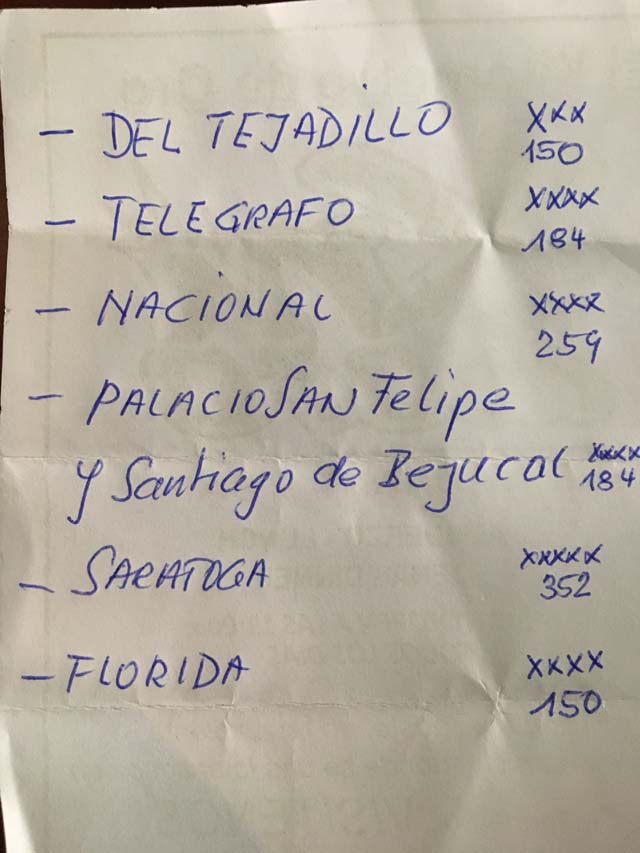 - DEL TEJADILLO xxx
150
- TELEGRAFO xxxx
184
- NACIONAL xxxx
259
- PALACIO SAN Felipe
y Santiago de Bejucal xxxx
184
- SARATOGA xxxxx
352
- FLORIDA xxxx
150